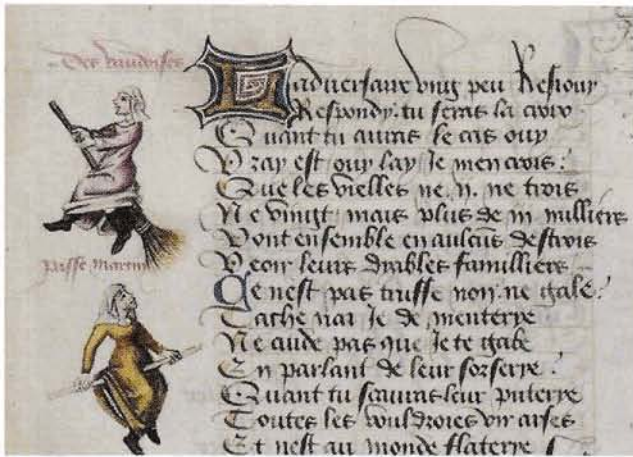 Des vaudoises
Ladversaire ung peu Resiouy
Respondy: tu feras la croix
Quant tu auras le cas ouy
Vray est ouy lay Je men crois:
Que les vielles ne .ii. ne trois
Ne vingt mais plus de iii milliers
Vont ensemble en aulcuns destrois
Veoir leurs dyables familliers
passe martin
Ce nest pas truffe non ne gale:
Tache nai Je de menterye
Ne cuide pas que Je te gabe
En parlant de leur sorserye:
Quant tu scauras leur puterye
Toutes les vouldroies vir arses
Et nest au monde flaterye